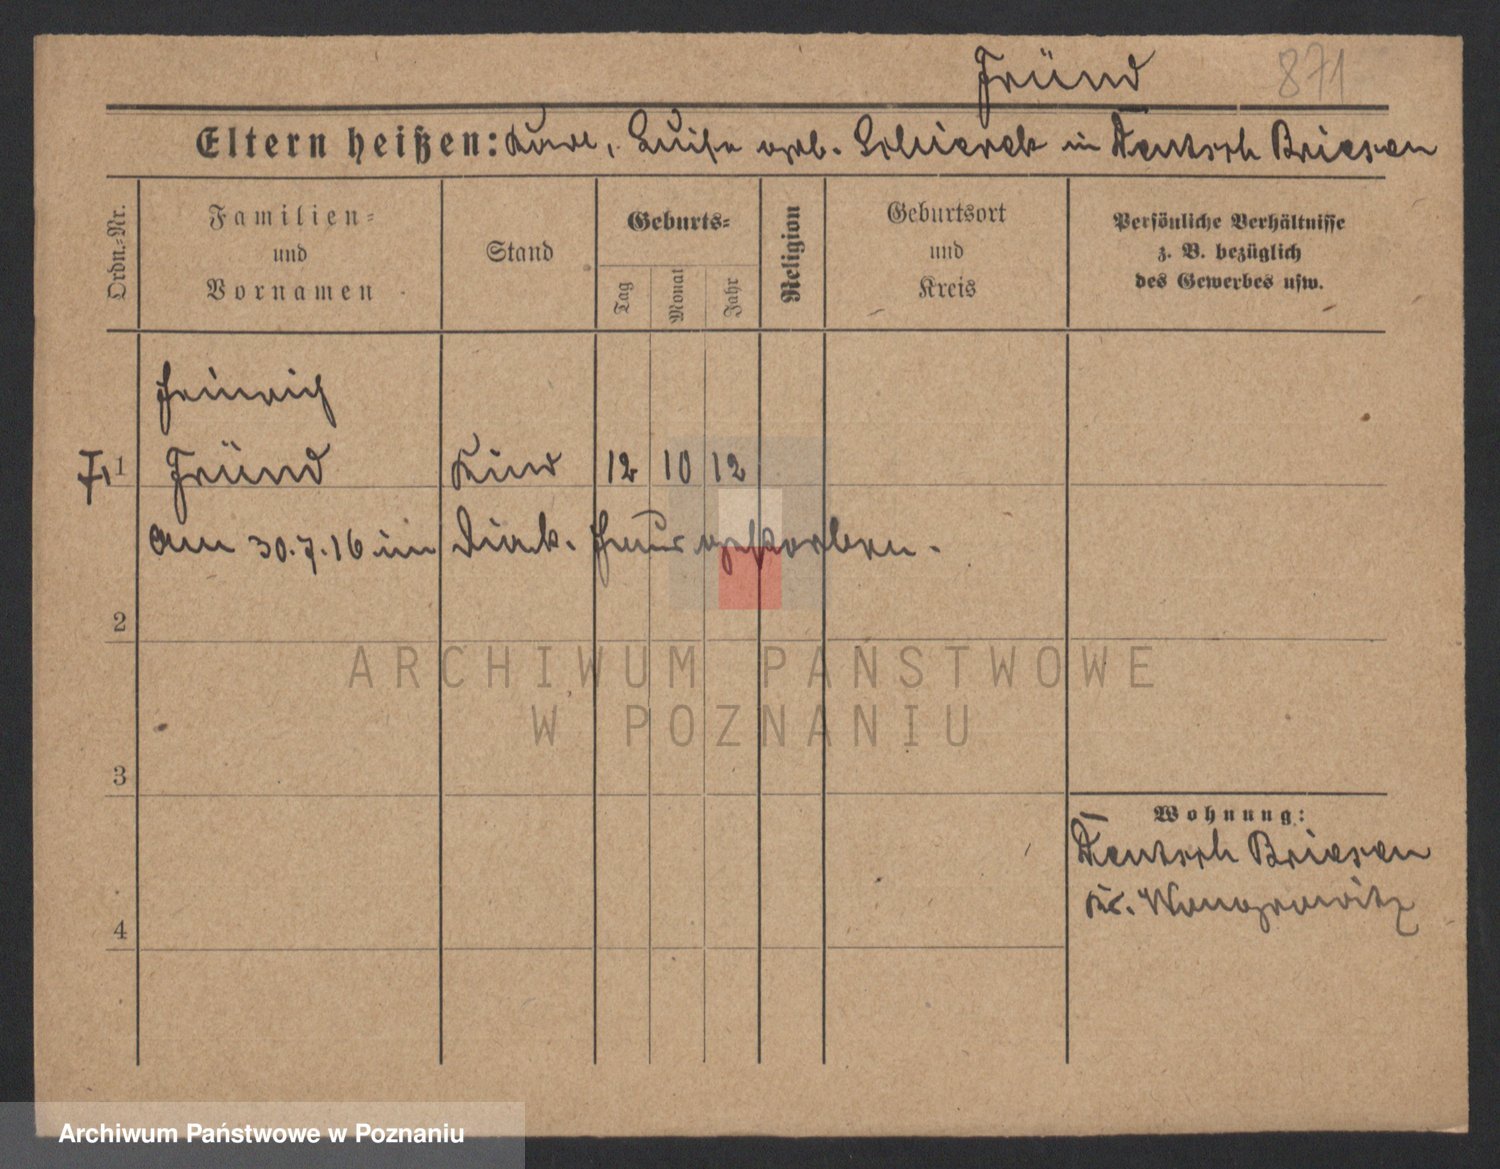 Fründ 871
Eltern heißen: Karl, Luise geb. Schierek in Deutsch Briesen
Ordn.-Nr.
Familien-
und
Vornamen
Stand
Geburts-
Tag
Monat
Jahr
Religion
Geburtsort
und
Kreis
Persönliche Verhältnisse
z. B. bezüglich
des Gewerbes usw.
Heinrich
1 Fründ Kind 12 10 12
am 30.7.16 im Diak. Haus gestorben.
2
ARCHIWUM PAŃSTWOWE
W POZNANIU
3
Wohnung:
Deutsch Briesen
Kr. Wongrowitz
4
Archiwum Państwowe w Poznaniu